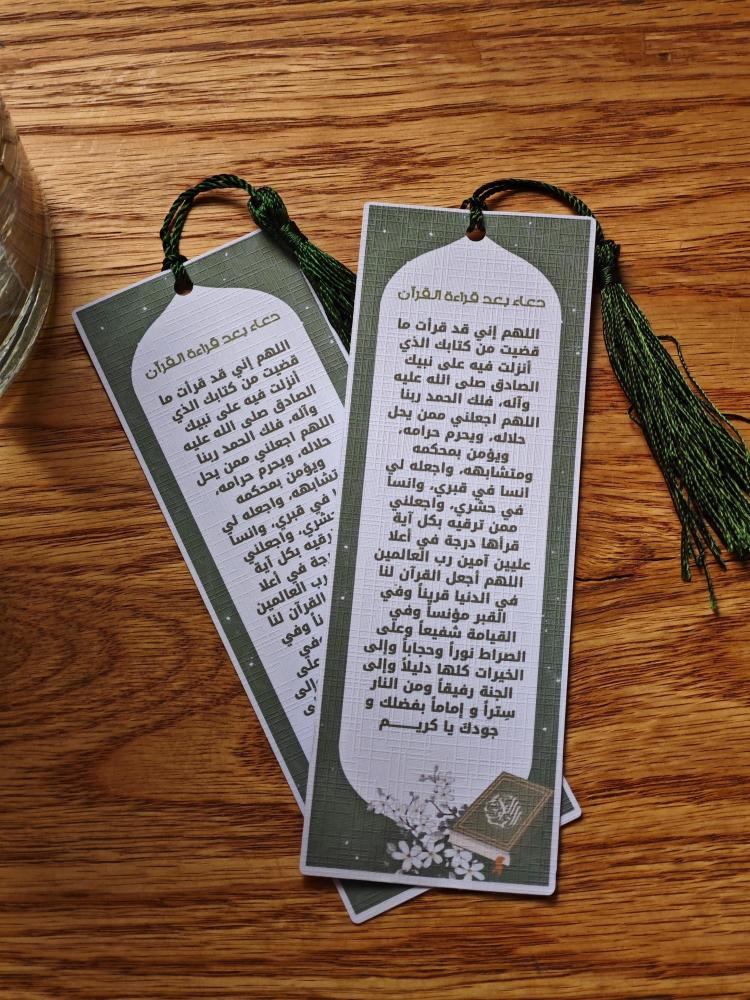 دعاء بعد قراءة القرآن
اللهم إني قد قرأت ما
قضيت من كتابك الذي
أنزلت فيه على نبيك
الصادق صلى الله عليه
وآله، فلك الحمد ربنا
اللهم اجعلني ممن يحل
حلاله، ويحرم حرامه،
ويؤمن بمحكمه
ومتشابهه، واجعله لي
انسا في قبري، وانسا
في حشري، واجعلني
ممن ترقيه بكل آية
قرأها درجة في أعلا
عليين آمين رب العالمين
اللهم أجعل القرآن لنا
في الدنيا قريناً وفي
القبر مؤنساً وفي
القيامة شفيعاً وعلى
الصراط نوراً وحجاباً وإلى
الخيرات كلها دليلاً وإلى
الجنة رفيقاً ومن النار
ستراً و إماماً بفضلك و
جودك يا كريـــــم
دعاء بعد قراءة القرآن
اللهم إني قد قرأت ما
قضيت من كتابك الذي
أنزلت فيه على نبيك
الصادق صلى الله عليه
وآله، فلك الحمد ربنا
اللهم اجعلني ممن يحل
حلاله، ويحرم حرامه،
ويؤمن بمحكمه
واجعله لي
في قبري، وانسا
واجعلني
بكل آية
في أعلا
رب العالمين
القرآن لنا
وفي